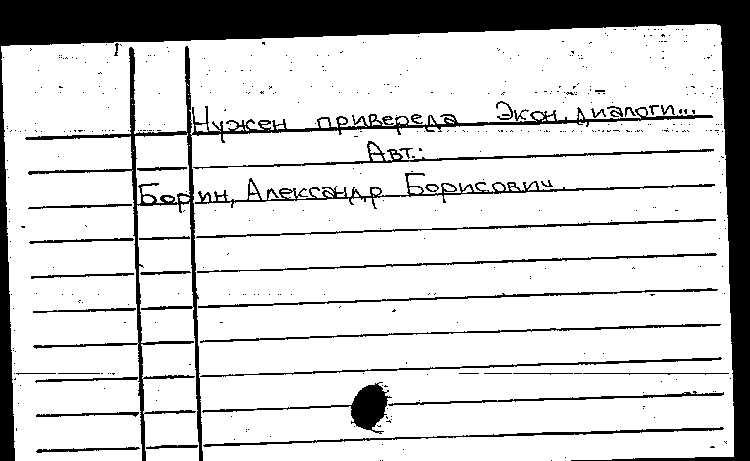 Нужен привереда Экон. диалоги...
Авт.:
Борин, Александр Борисович.